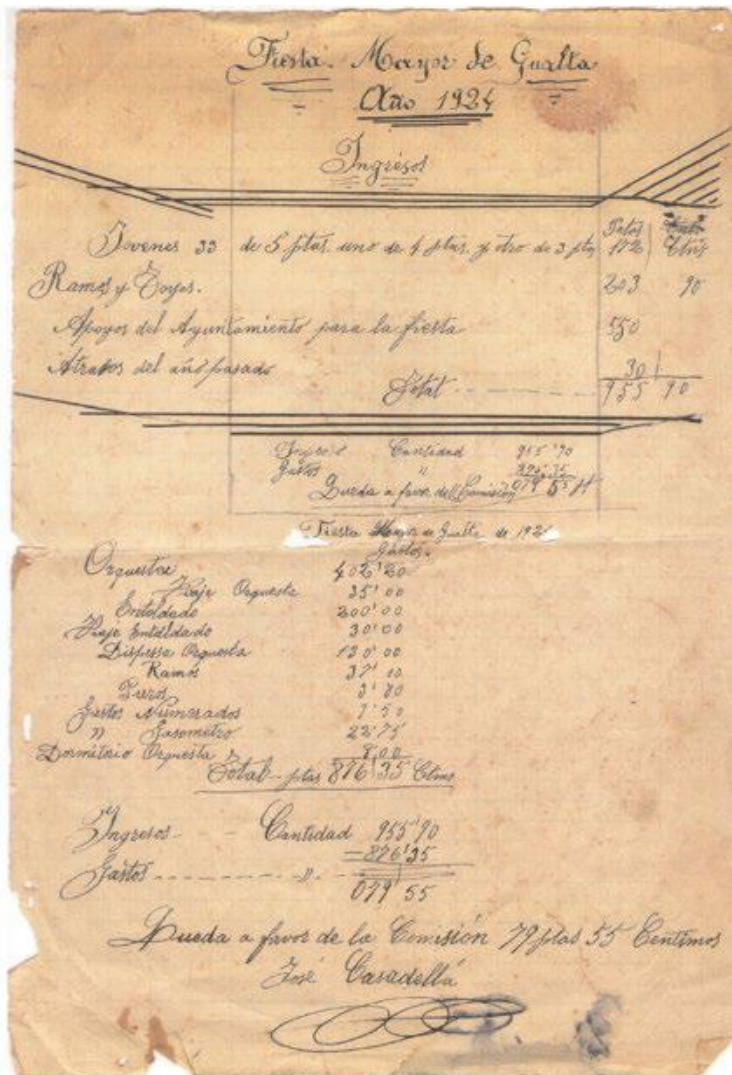 Fiesta Mayor de Gualta
Año 1924
Ingresos
Petas Ctms
Jovenes 33 de 5 ptas. uno de 4 ptas. y otro de 3 ptas 172
Ramos y Toyas. 203 90
Apoyos del Ayuntamiento para la fiesta 550
Atrasos del año pasado 30
Total 955 90
Ingresos Cantidad 955'90
Gastos " 876'35
Queda a favor de Comisión 079'55 pt
Fiesta Mayor de Gualta de 192
Gastos.
Orquestas 402'20
Viaje Orquesta 35'00
Entoldado 200'00
Viaje Entoldado 30'00
Dispessa Orquesta 130'00
Ramos 37'10
3'80
Gastos Numerados 7'50
" Gasometro 22'75
Dormitorio Orquesta 8'00
Total ptas 876'35 Ctms
Ingresos Cantidad 955'90
Gastos " -876'35
079'55
Queda a favor de la Comisión 79 ptas 55 Centimos
José Casadellá